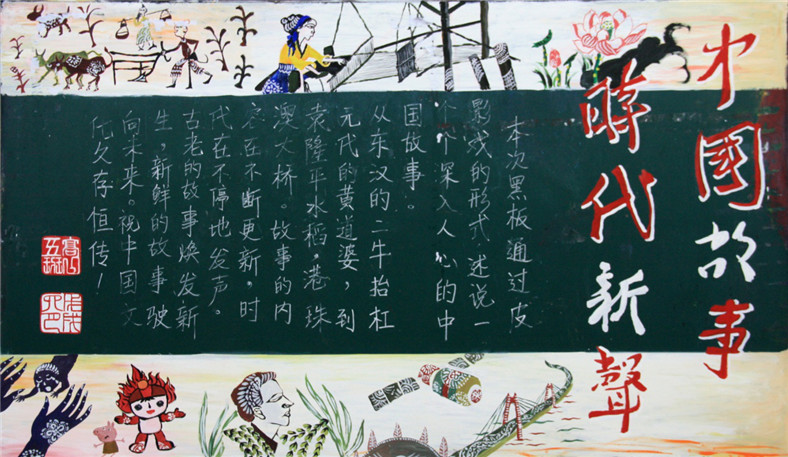 中國故事
時代新聲
本次黑板通过皮
影戏的形式,述说一
个个深入人心的中
国故事。
从东汉的二牛抬杠
元代的黄道婆,到
袁隆平水稻,港珠
澳大桥。故事的内
容在不断更新,时
代在不停地发声。
古老的故事焕发新
生,新鲜的故事驶
向未来。祝中国文
化久存恒传!